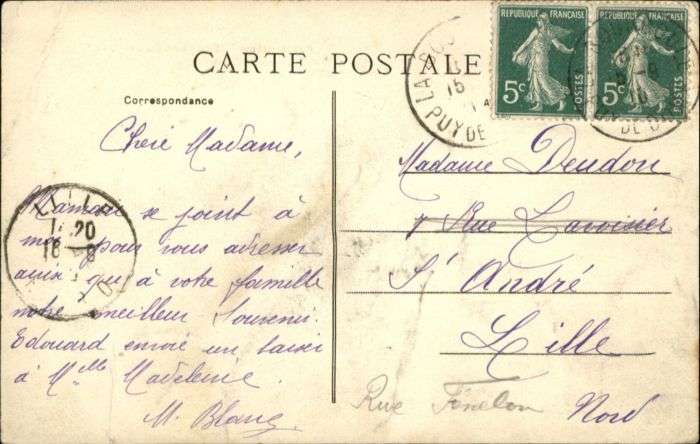 CARTE POSTALE
Correspondance
Chère Madame,
Maman se joint à
moi pour vous adresser
ainsi qu'à votre famille
notre meilleur souvenir.
Edouard envoie un baiser
à Mlle Madeleine.
M. Blanc
REPUBLIQUE FRANÇAISE
5c POSTES
REPUBLIQUE FRANÇAISE
5c POSTES
PUY DE
15
PUY DE D
LILLE
20
18 - 8
Madame Deudon
7 Rue Lavoisier
St André
Lille
Rue Fénelon
Nord